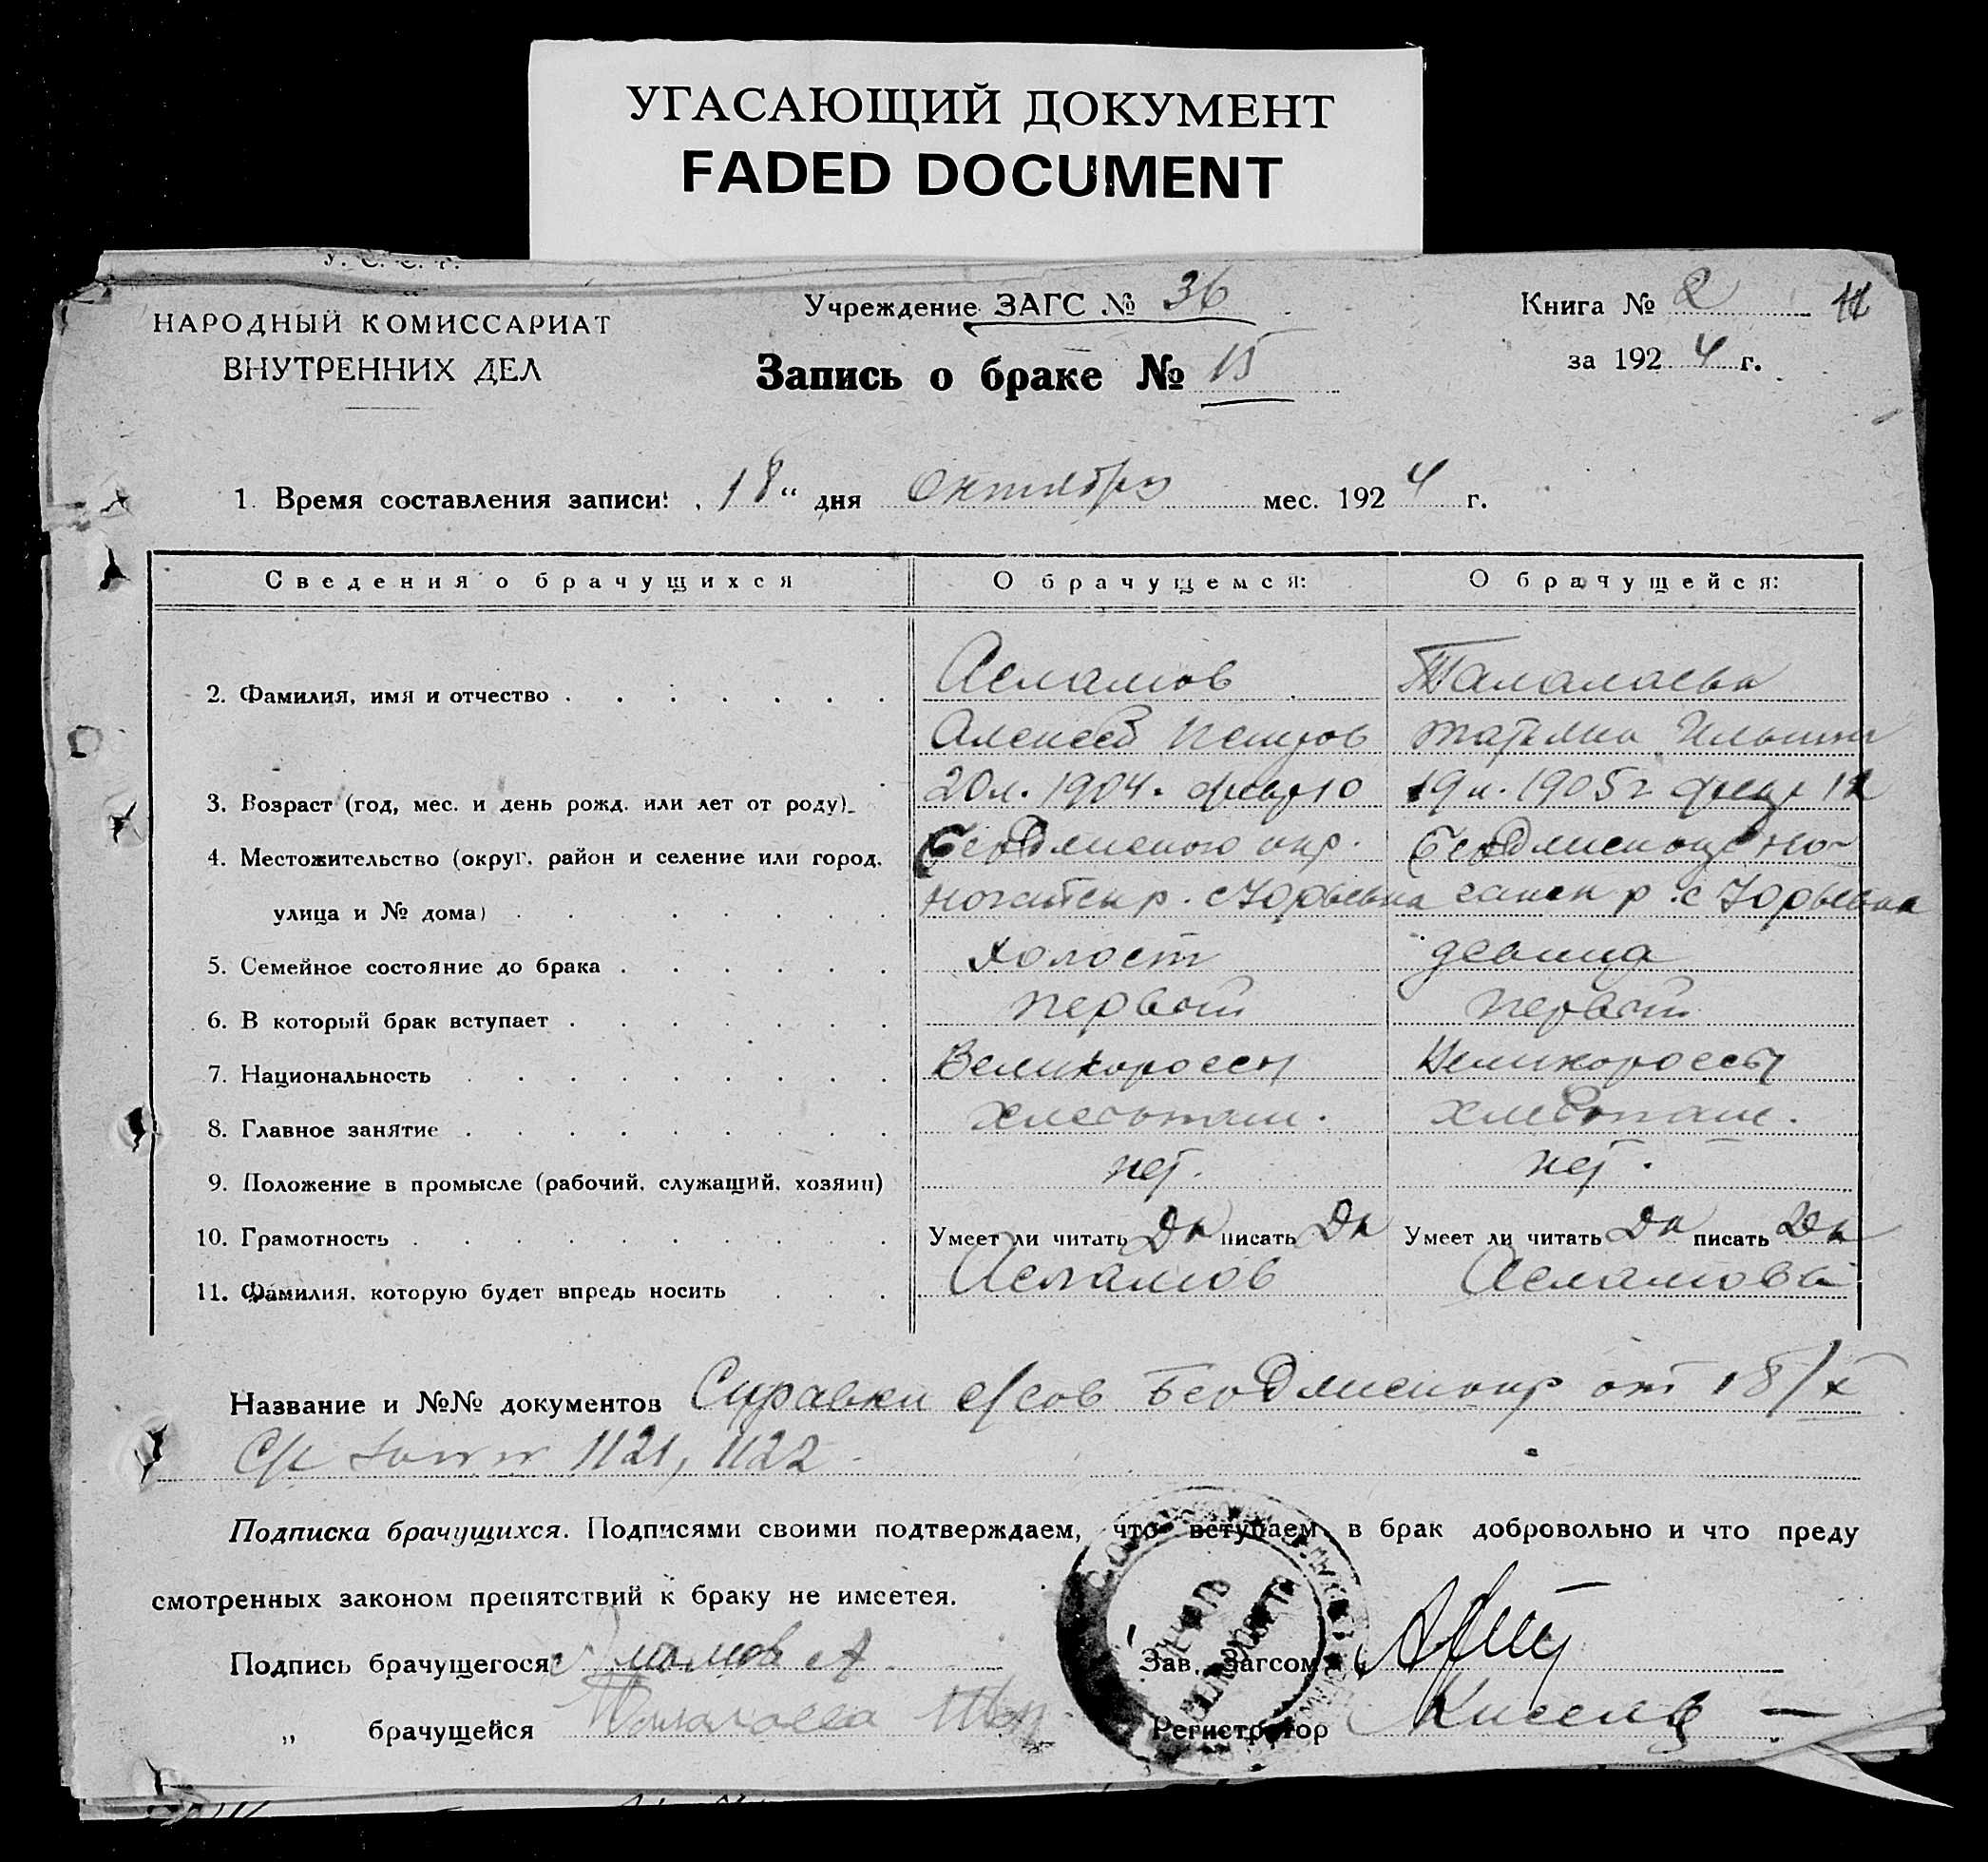 УГАСАЮЩИЙ ДОКУМЕНТ
FADED DOCUMENT
У. С. С. Р.
НАРОДНЫЙ КОМИССАРИАТ
ВНУТРЕННИХ ДЕЛ
Учреждение ЗАГС № 36
Книга № 2
за 1924 г.
Запись о браке № 15
1. Время составления записи: „18“ дня октября мес. 1924 г.
Сведения о брачущихся О брачущемся: О брачущейся:
2. Фамилия, имя и отчество Асламов Талалаева
Алексей Петров Татьяна Ильин
3. Возраст (год, мес. и день рожд. или лет от роду) 20 л. 1904. февр 10 19 л. 1905 г. февр 12
4. Местожительство (округ, район и селение или город, Бердянского окр. Бердянск окр Но-
улица и № дома) Ногайск р. с Юрьевка гайск р. с Юрьевка
5. Семейное состояние до брака холост девица
6. В который брак вступает первый первый
7. Национальность Великороссы Великороссы
8. Главное занятие хлебопаш. хлебопаш.
9. Положение в промысле (рабочий, служащий, хозяин) нет. нет.
10. Грамотность Умеет ли читать Да писать Да Умеет ли читать Да писать Да
11. Фамилия, которую будет впредь носить Асламов Асламова
Название и №№ документов Справки с/сов Бердянск окр от 18/X
1121, 1122
Подписка брачущихся. Подписями своими подтверждаем, что вступаем в брак добровольно и что преду
смотренных законом препятствий к браку не имеется.
Подпись брачущегося А
Зав. Загсом
„ брачущейся Талалаева
Регистратор